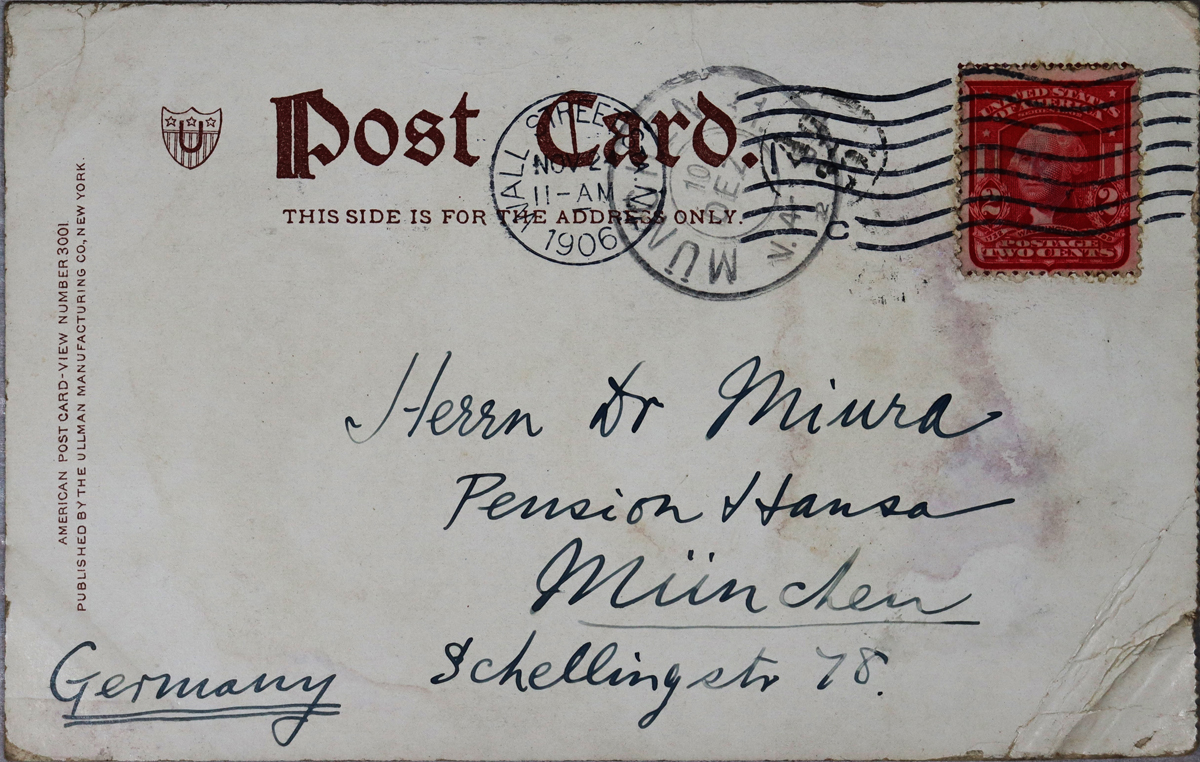 U
Post Card.
THIS SIDE IS FOR THE ADDRESS ONLY.
WALL STREET
NOV 2
11-AM
1906
MÜNCHEN
10
DEZ
V.
C
UNITED STATES
2 2
POSTAGE
TWO CENTS
AMERICAN POST CARD-VIEW NUMBER 3001
PUBLISHED BY THE ULLMAN MANUFACTURING CO, NEW YORK.
Herrn Dr Miura
Pension Hansa
München
Schellingstr 78.
Germany